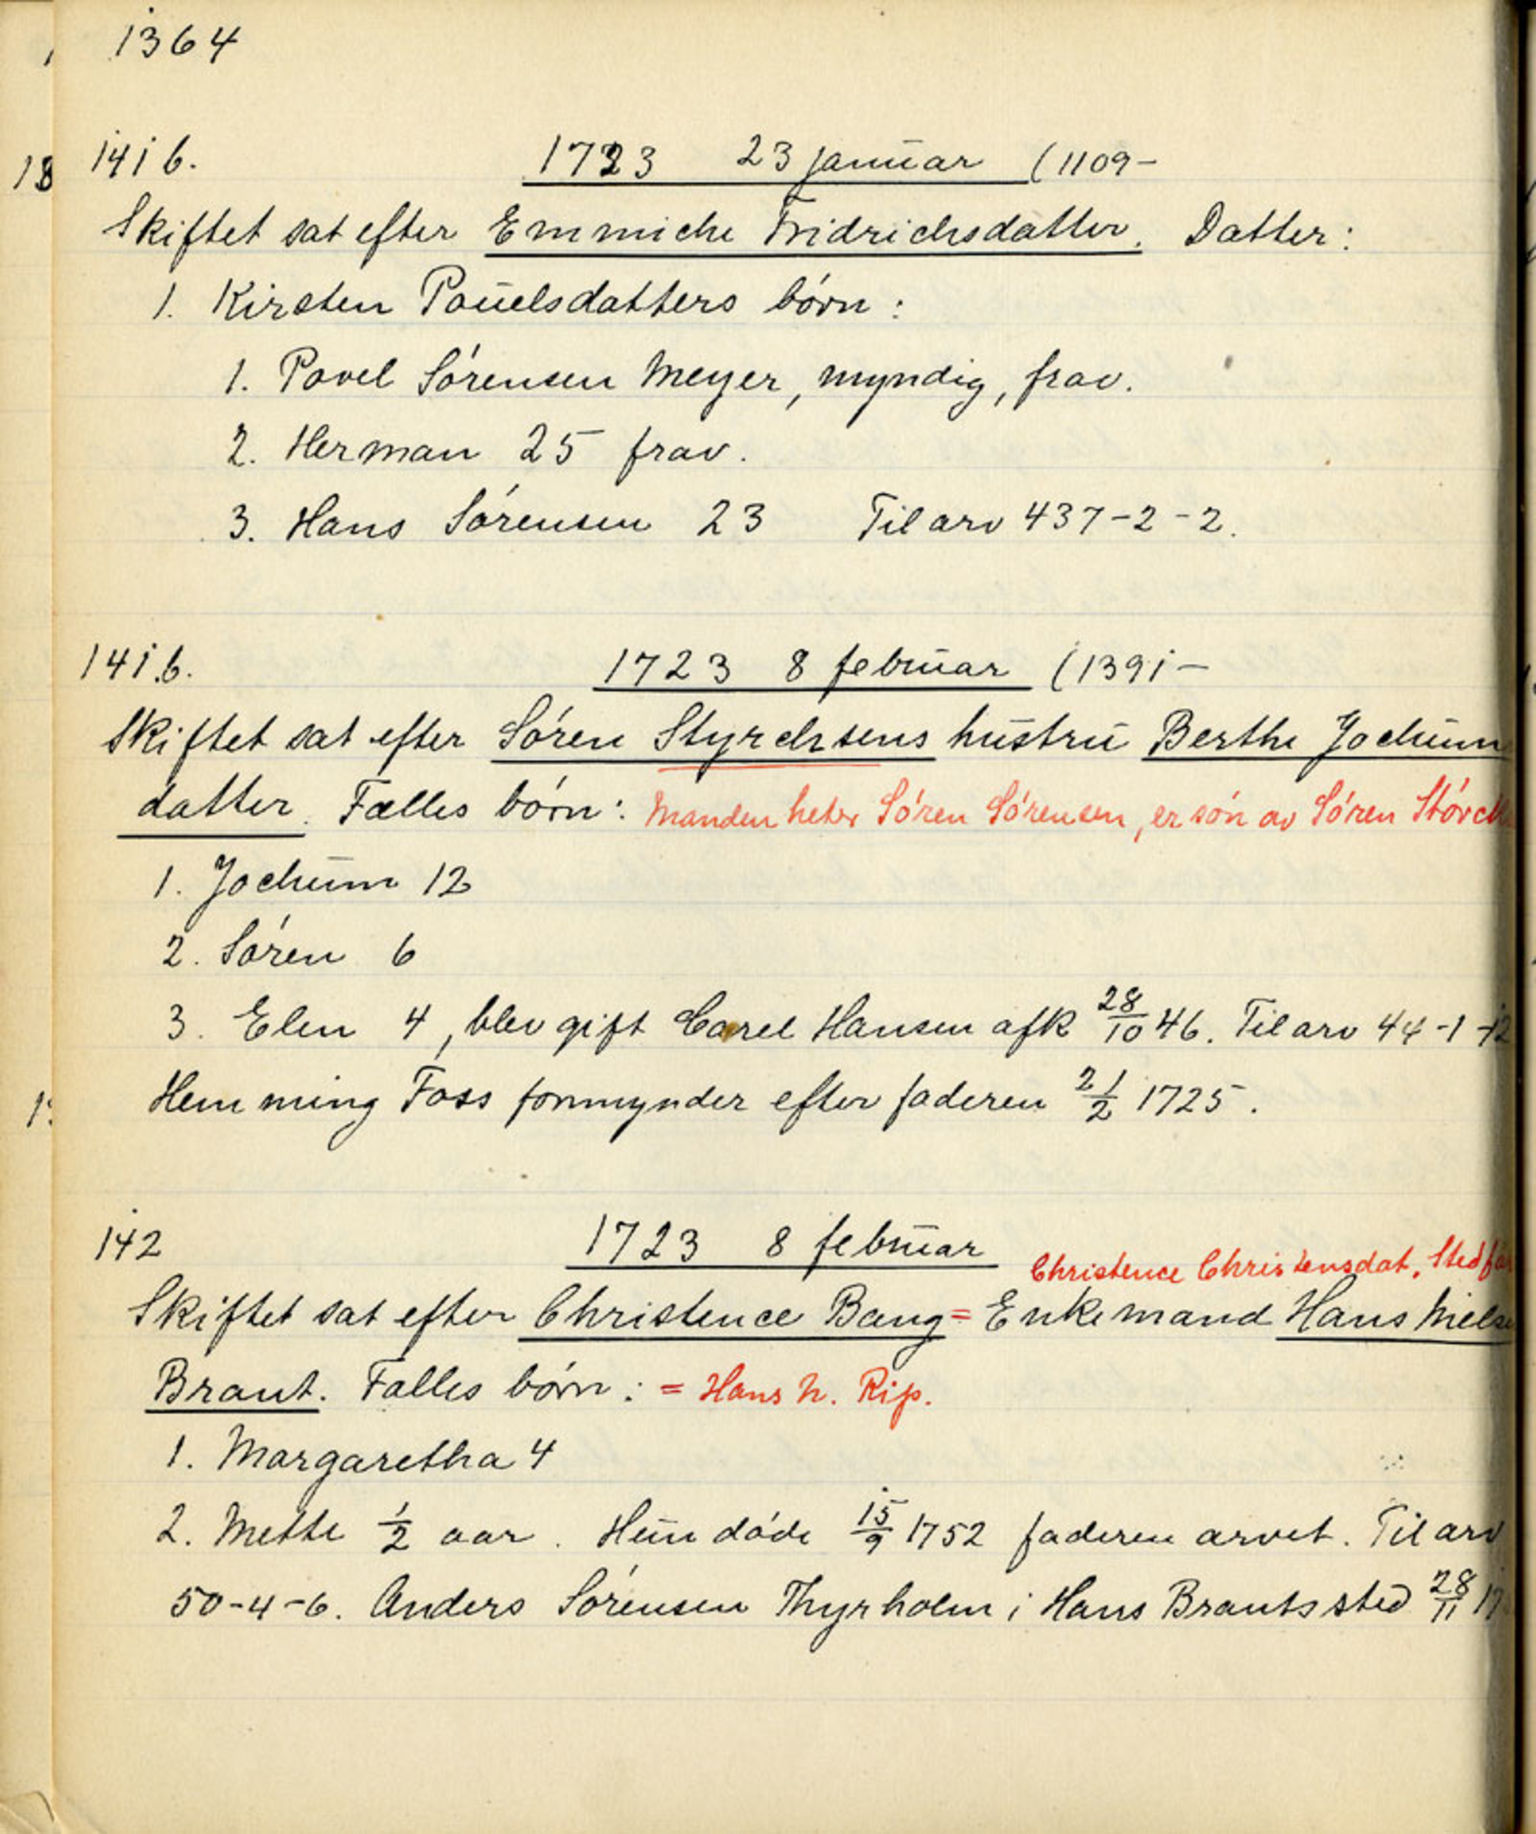 1364
141 b. 1723 23 januar (1109-
Skiftet sat efter Emmiche Fridrichsdatter. Datter:
1. Kirsten Pouelsdatters børn:
1. Povel Sørensen Meyer, myndig, frav.
2. Herman 25 frav.
3. Hans Sørensen 23 Til arv 437-2-2.
141 b. 1723 8 februar (1391-
Skiftet sat efter Søren Styrchsens hustru Berthe Jochum
datter. Fælles børn: Manden heter Søren Sørensen, er søn av Søren
1. Jochum 12
2. Søren 6
3. Elen 4, blev gift Carel Hansen afk 28/10 46. Til arv 44-1-12
Hemming Foss formynder efter faderen 21/2 1725.
142 1723 8 februar
Christence Christensdat.
Skiftet sat efter Christence Bang = Enkemand Hans
Brant. Fælles børn: = Hans N. Rip.
1. Margaretha 4
2. Mette 1/2 aar. Hun døde 15/9 1752 faderen arvet. Til arv
50-4-6. Anders Sørensen Thyrholm i Hans Brants sted 28/11
18